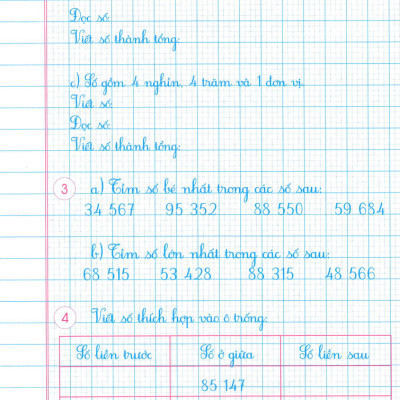 Đọc số:
Viết số thành tổng:
c) Số gồm 4 nghìn, 4 trăm và 1 đơn vị.
Viết số:
Đọc số:
Viết số thành tổng:
3 a) Tìm số bé nhất trong các số sau:
34 567 95 352 88 550 59 684
b) Tìm số lớn nhất trong các số sau:
68 515 53 428 88 315 48 566
4 Viết số thích hợp vào ô trống:
Số liền trước Số ở giữa Số liền sau
85 147